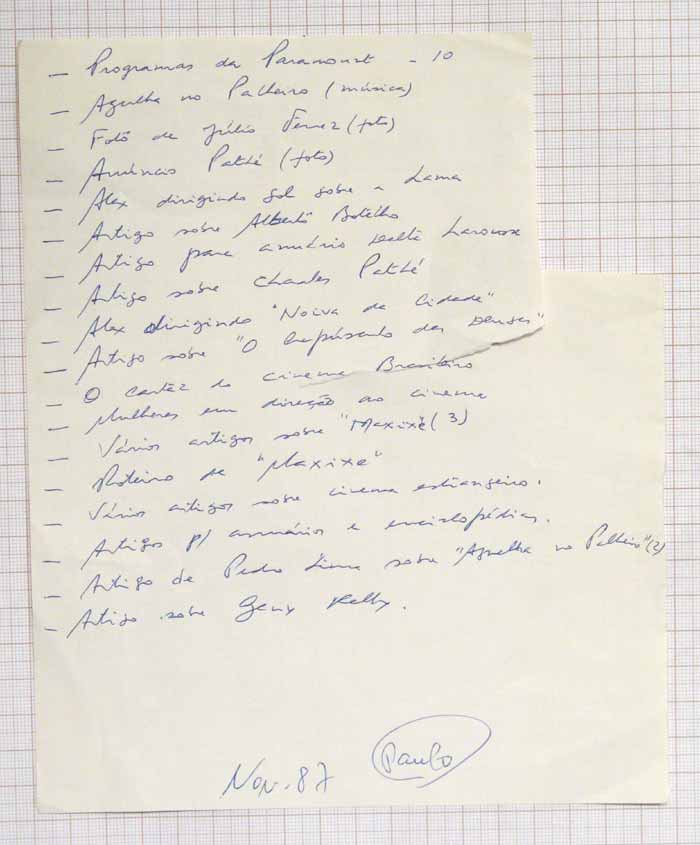 — Programas da Paramount - 10
— Agulha no Palheiro (música)
— Foto de Júlio Ferrez (foto)
— Anúncio Pathé (foto)
— Alex dirigindo Sol sobre a Lama
— Artigo sobre Alberto Botelho
— Artigo para anuário Larousse
— Artigo sobre Charles Pathé
— Alex dirigindo "Noiva da Cidade"
— Artigo sobre "O Crepúsculo dos Deuses"
— O cartaz do cinema Brasileiro
— Mulheres em direção ao cinema
— Vários artigos sobre "Maxixe" (3)
— Roteiro de "Maxixe"
— Vários artigos sobre cinema estrangeiro.
— Artigos p/ anuários e enciclopédias.
— Artigo de Pedro Lima sobre "Agulha no Palheiro" (2)
— Artigo sobre Gene Kelly.
Nov. 87
Paulo